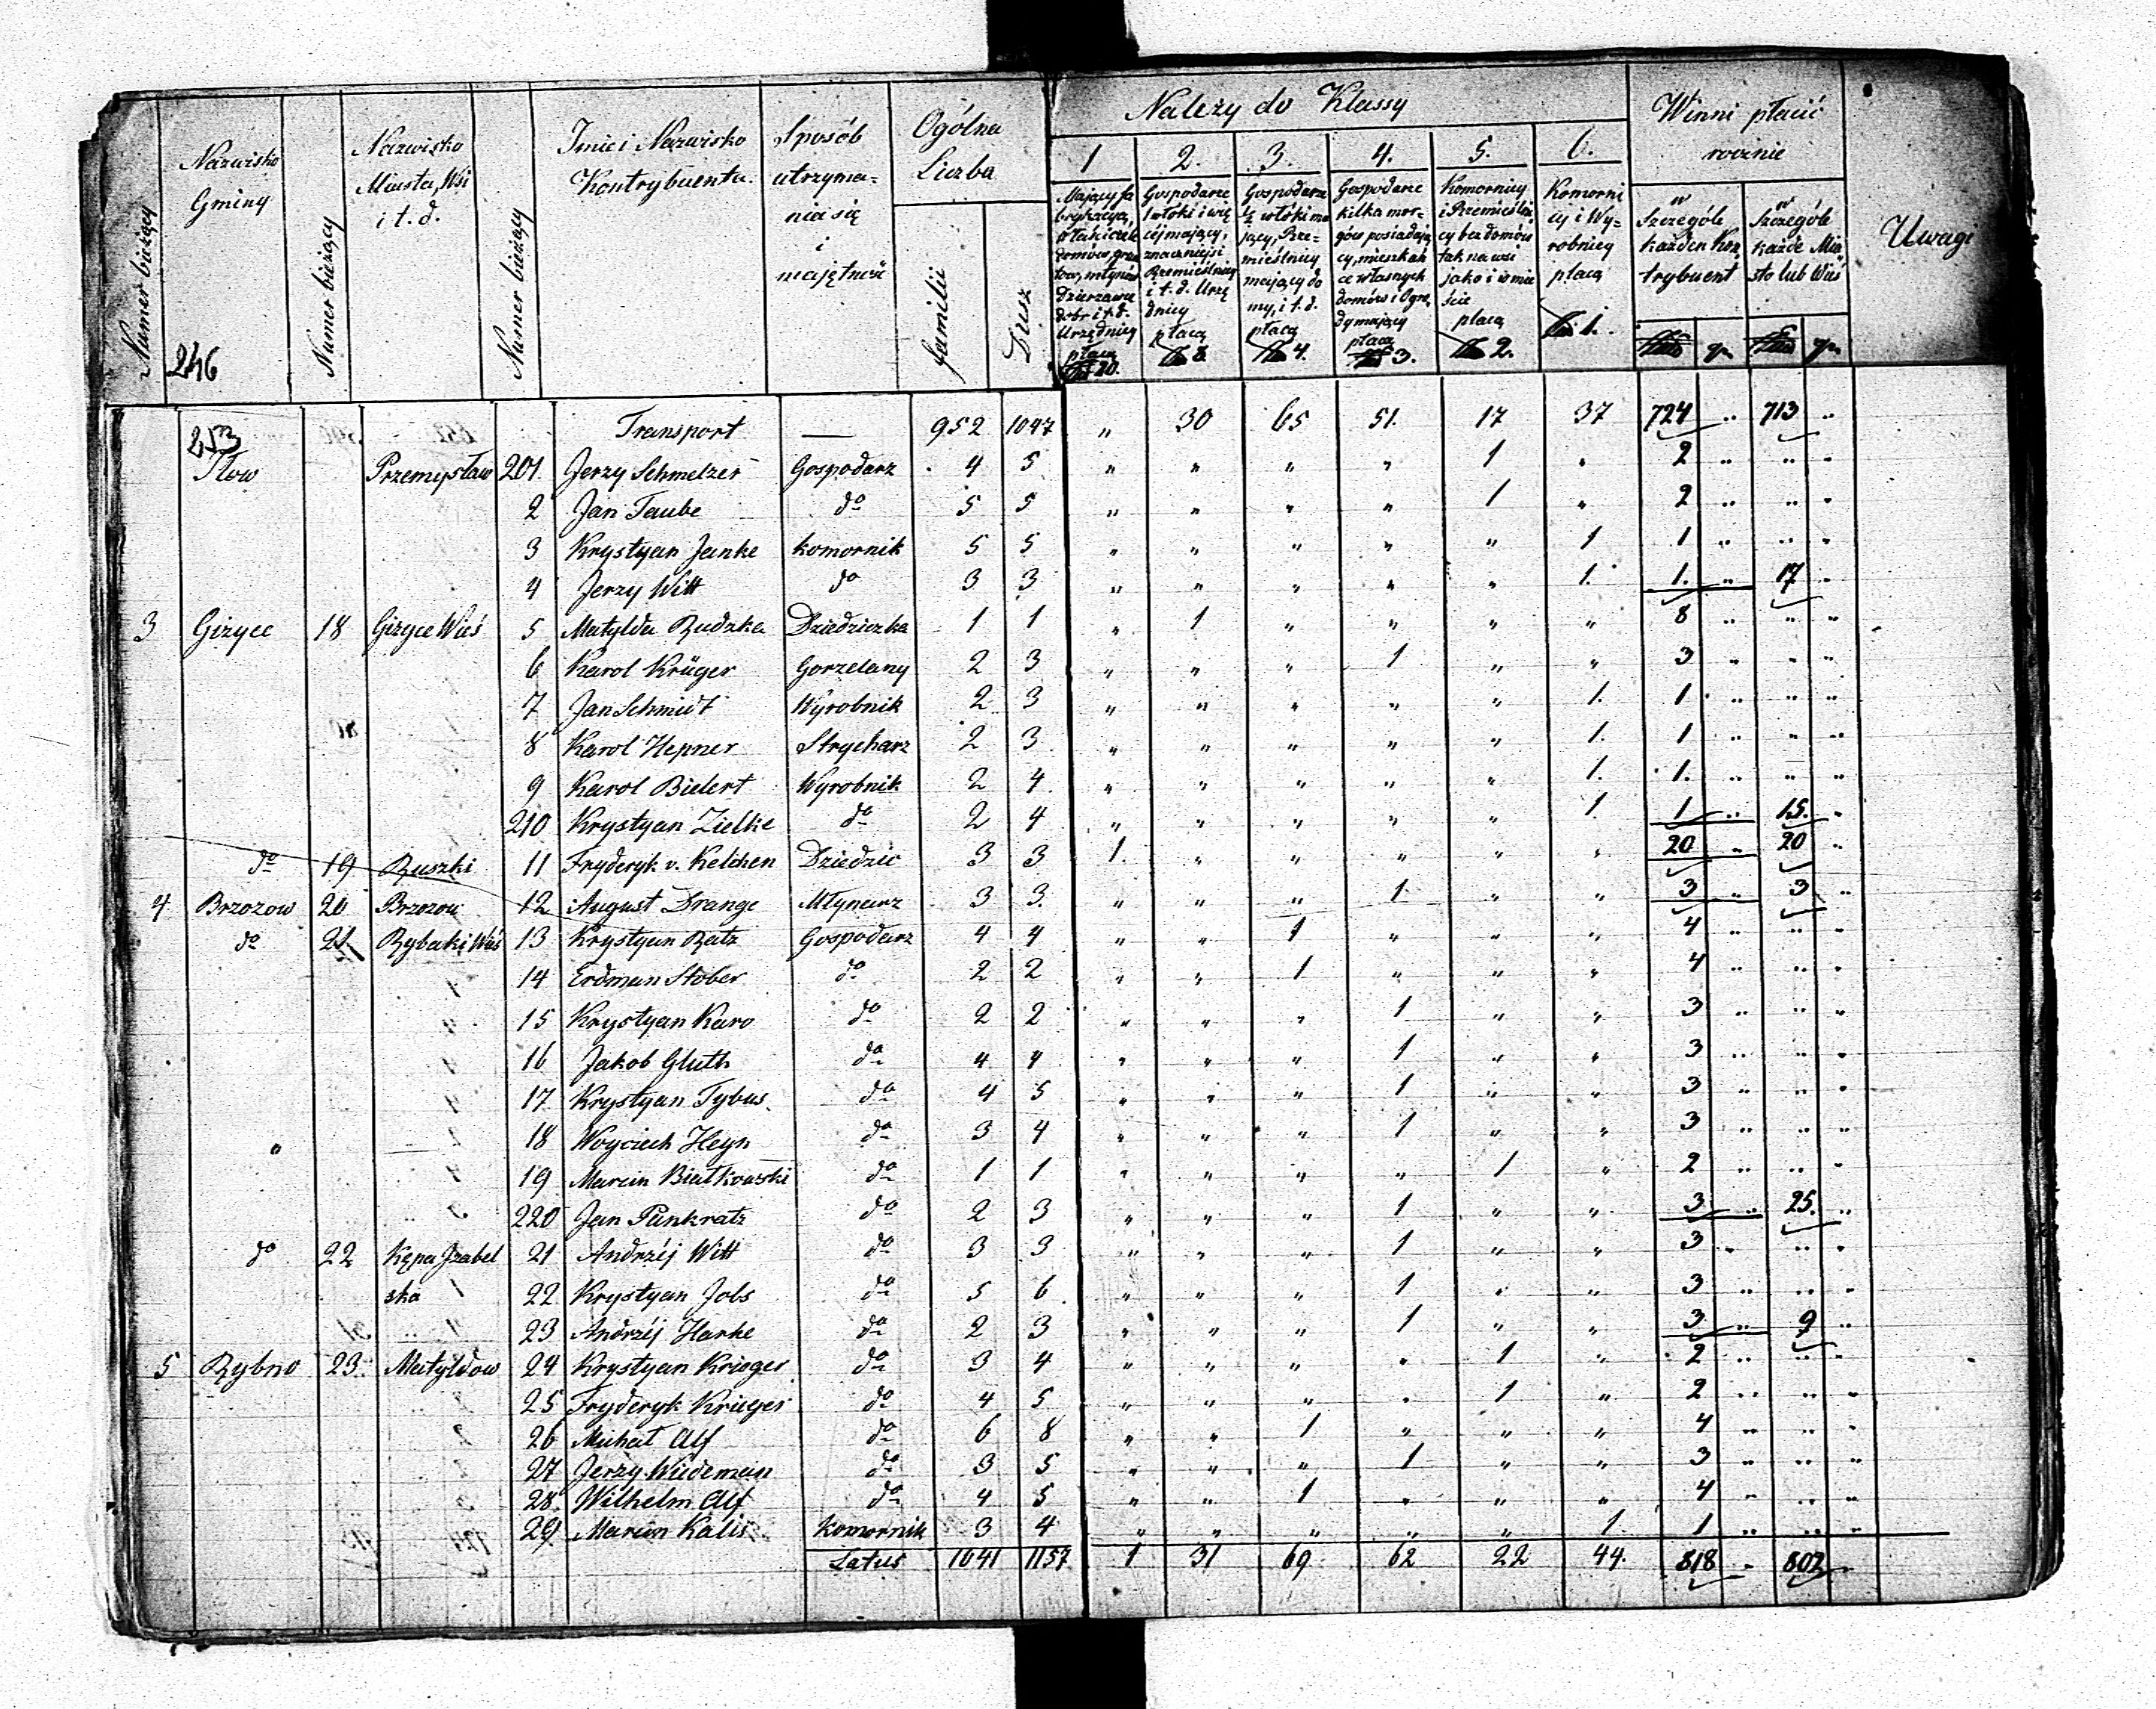 Należy do Klassy
Winni płacić rocznie
Numer bieżący
Nazwisko Gminy
Numer bieżący
Nazwisko Miasta, Wsi i t. d.
Numer bieżący
Imie i Nazwisko Kontrybuenta
Sposób utrzymania się i majętność
Ogólna Liczba
Familii
Dusz
1
2.
3.
4.
5.
6.
Gospodarze
Gospodarze kilka morgów posiadający, mieszkańce własnych domów i
płacą 3.
Komornicy i Rzemieślnicy bez domów tak na wsi jako i w mieście płacą 2.
Komornicy i Wyrobnicy płacą 1.
Szczegół: każden Kontrybuent
Szczegół: każde Miasto lub Wieś
Uwagi
246
253
Transport — 952 1047 " 30 65 51. 17 37 724 " 713 "
Iłow Przemysław 201. Jerzy Schmelzer Gospodarz 4 5 " " " " 1 " 2 " " "
2 Jan Taube do 5 5 " " " " 1 " 2 " " "
3 Krystyan Janke komornik 5 5 " " " " " 1 1 " " "
4 Jerzy Witt do 3 3 " " " " " 1. 1. " 17 "
3 Giżyce 18 Giżyce Wieś 5 Matylda Rudzka Dziedziczka 1 1 " 1 " " " " 8 " " "
6 Karol Krüger Gorzelany 2 3 " " " 1 " " 3 " " "
7 Jan Schmidt Wyrobnik 2 3 " " " " " 1. 1 " " "
8 Karol Hepner Strycharz 2 3 " " " " " 1. 1 " " "
9 Karol Bielert Wyrobnik 2 4 " " " " " 1. 1. " " "
210 Krystyan Zielke do 2 4 " " " " " 1 1 " 15. "
do 19 Ruszki 11 Fryderyk v. Kelchen Dziedzic 3 3 1. " " " " " 20 " 20 "
4 Brzozow 20 Brzozow 12 August Drange Młynarz 3 3. " " " 1 " " 3 " 3 "
do 21 Rybaki Wieś 13 Krystyan Ratz Gospodarz 4 4 " " 1 " " " 4 " " "
14 Erdman Stober do 2 2 " " 1 " " " 4 " " "
15 Krystyan Karo do 2 2 " " " 1 " " 3 " " "
16 Jakob Gluth do 4 4 " " " 1 " " 3 " " "
17 Krystyan Tybus do 4 5 " " " 1 " " 3 " " "
18 Woyciech Heyn do 3 4 " " " 1 " " 3 " " "
19 Marcin Białkowski do 1 1 " " " " 1 " 2 " " "
220 Jan Pankratz do 2 3 " " " 1 " " 3 " 25. "
do 22 Kępa Izabel 21 Andrzéj Witt do 3 3 " " " 1 " " 3 " " "
ska 22 Krystyan Jobs do 5 6 " " " 1 " " 3 " " "
23 Andrzéj Harke do 2 3 " " " 1 " " 3 " 9 "
5 Rybno 23. Matyldow 24 Krystyan Krieger do 3 4 " " " " 1 " 2 " " "
25 Fryderyk Krieger do 4 5 " " " " 1 " 2 " " "
26 Michał Alf do 6 8 " " 1 " " " 4 " " "
27 Jerzy Wiedeman do 3 5 " " " 1 " " 3 " " "
28. Wilhelm Alf do 4 5 " " 1 " " " 4 " " "
29 Marcin Kalis komornik 3 4 " " " " " 1 1 " " "
Latus 1041 1157 1 31 69 62 22 44. 818 " 802 "